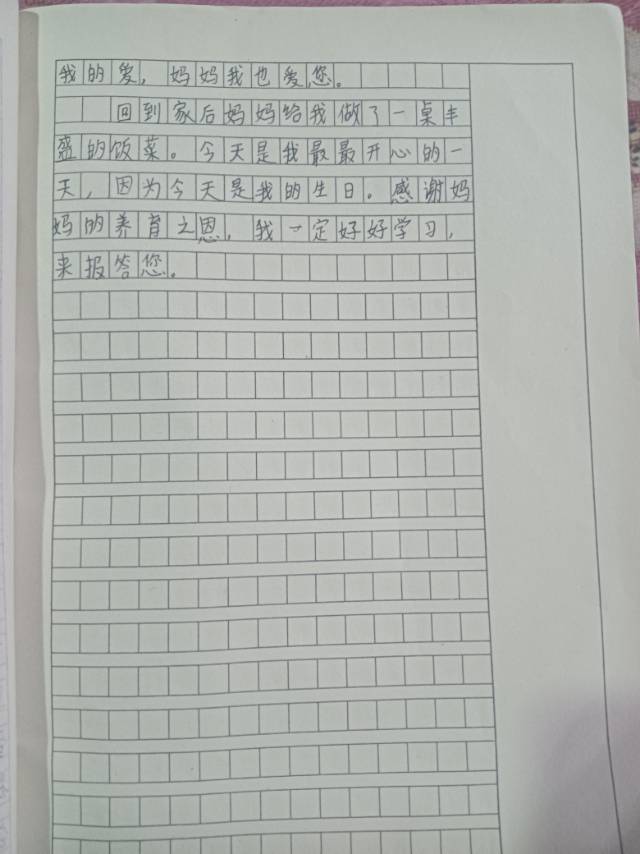 我的爱，妈妈我也爱您。
回到家后妈妈给我做了一桌丰
盛的饭菜。今天是我最最开心的一
天，因为今天是我的生日。感谢妈
妈的养育之恩，我一定好好学习，
来报答您。